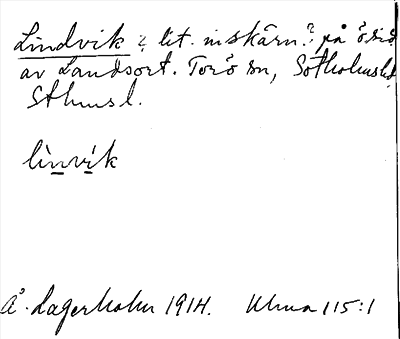 Lindvik ? lit. inskärn.? på ö. sid
av Landsort. Torö sn, Sotholmshd,
Sthmsl.
lìnvík
Å. Lagerholm 1914. Ulma 115:1